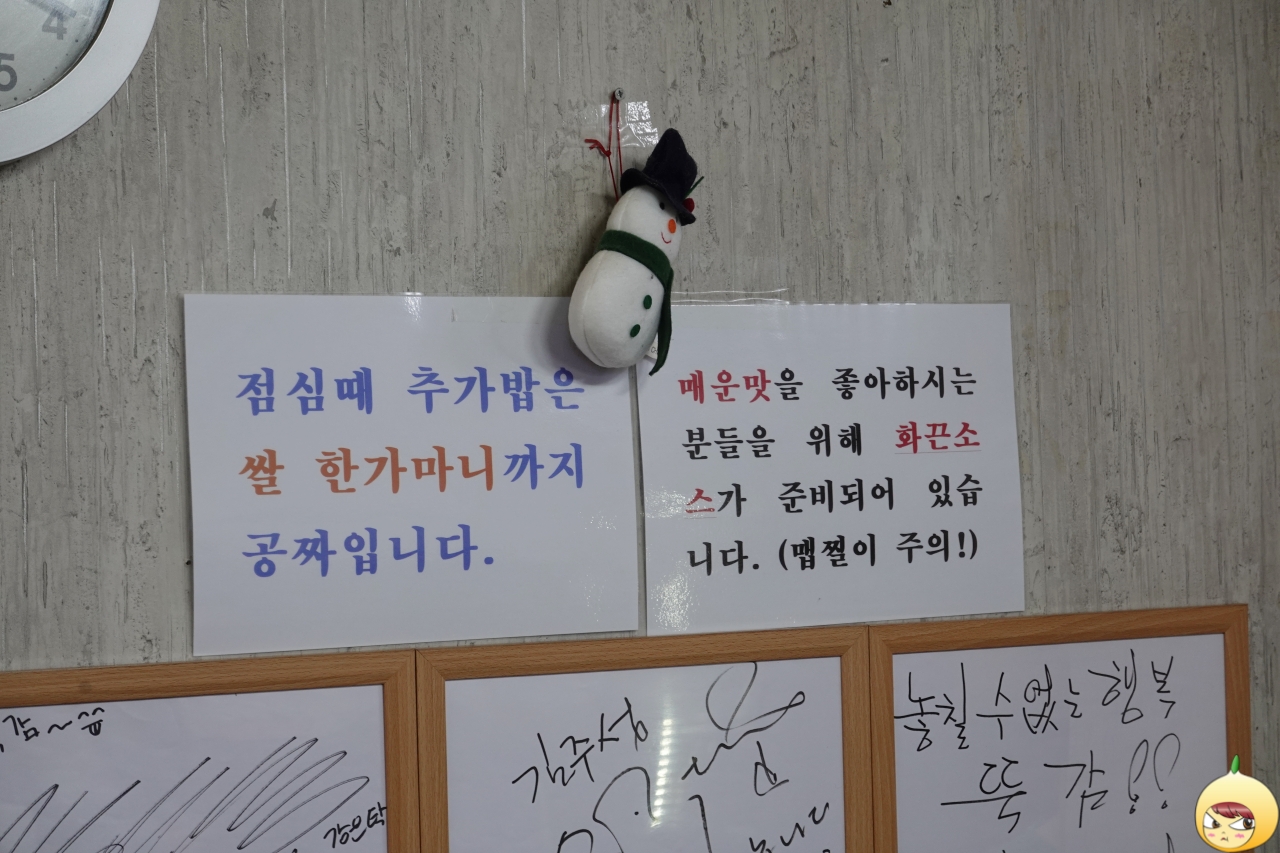 4
5
점심때 추가밥은
쌀 한가마니까지
공짜입니다.
매운맛을 좋아하시는
분들을 위해 화끈소
스가 준비되어 있습
니다. (맵찔이 주의!)
감~
강은탁
김주성
놓칠 수 없는 행복
뚝감!!